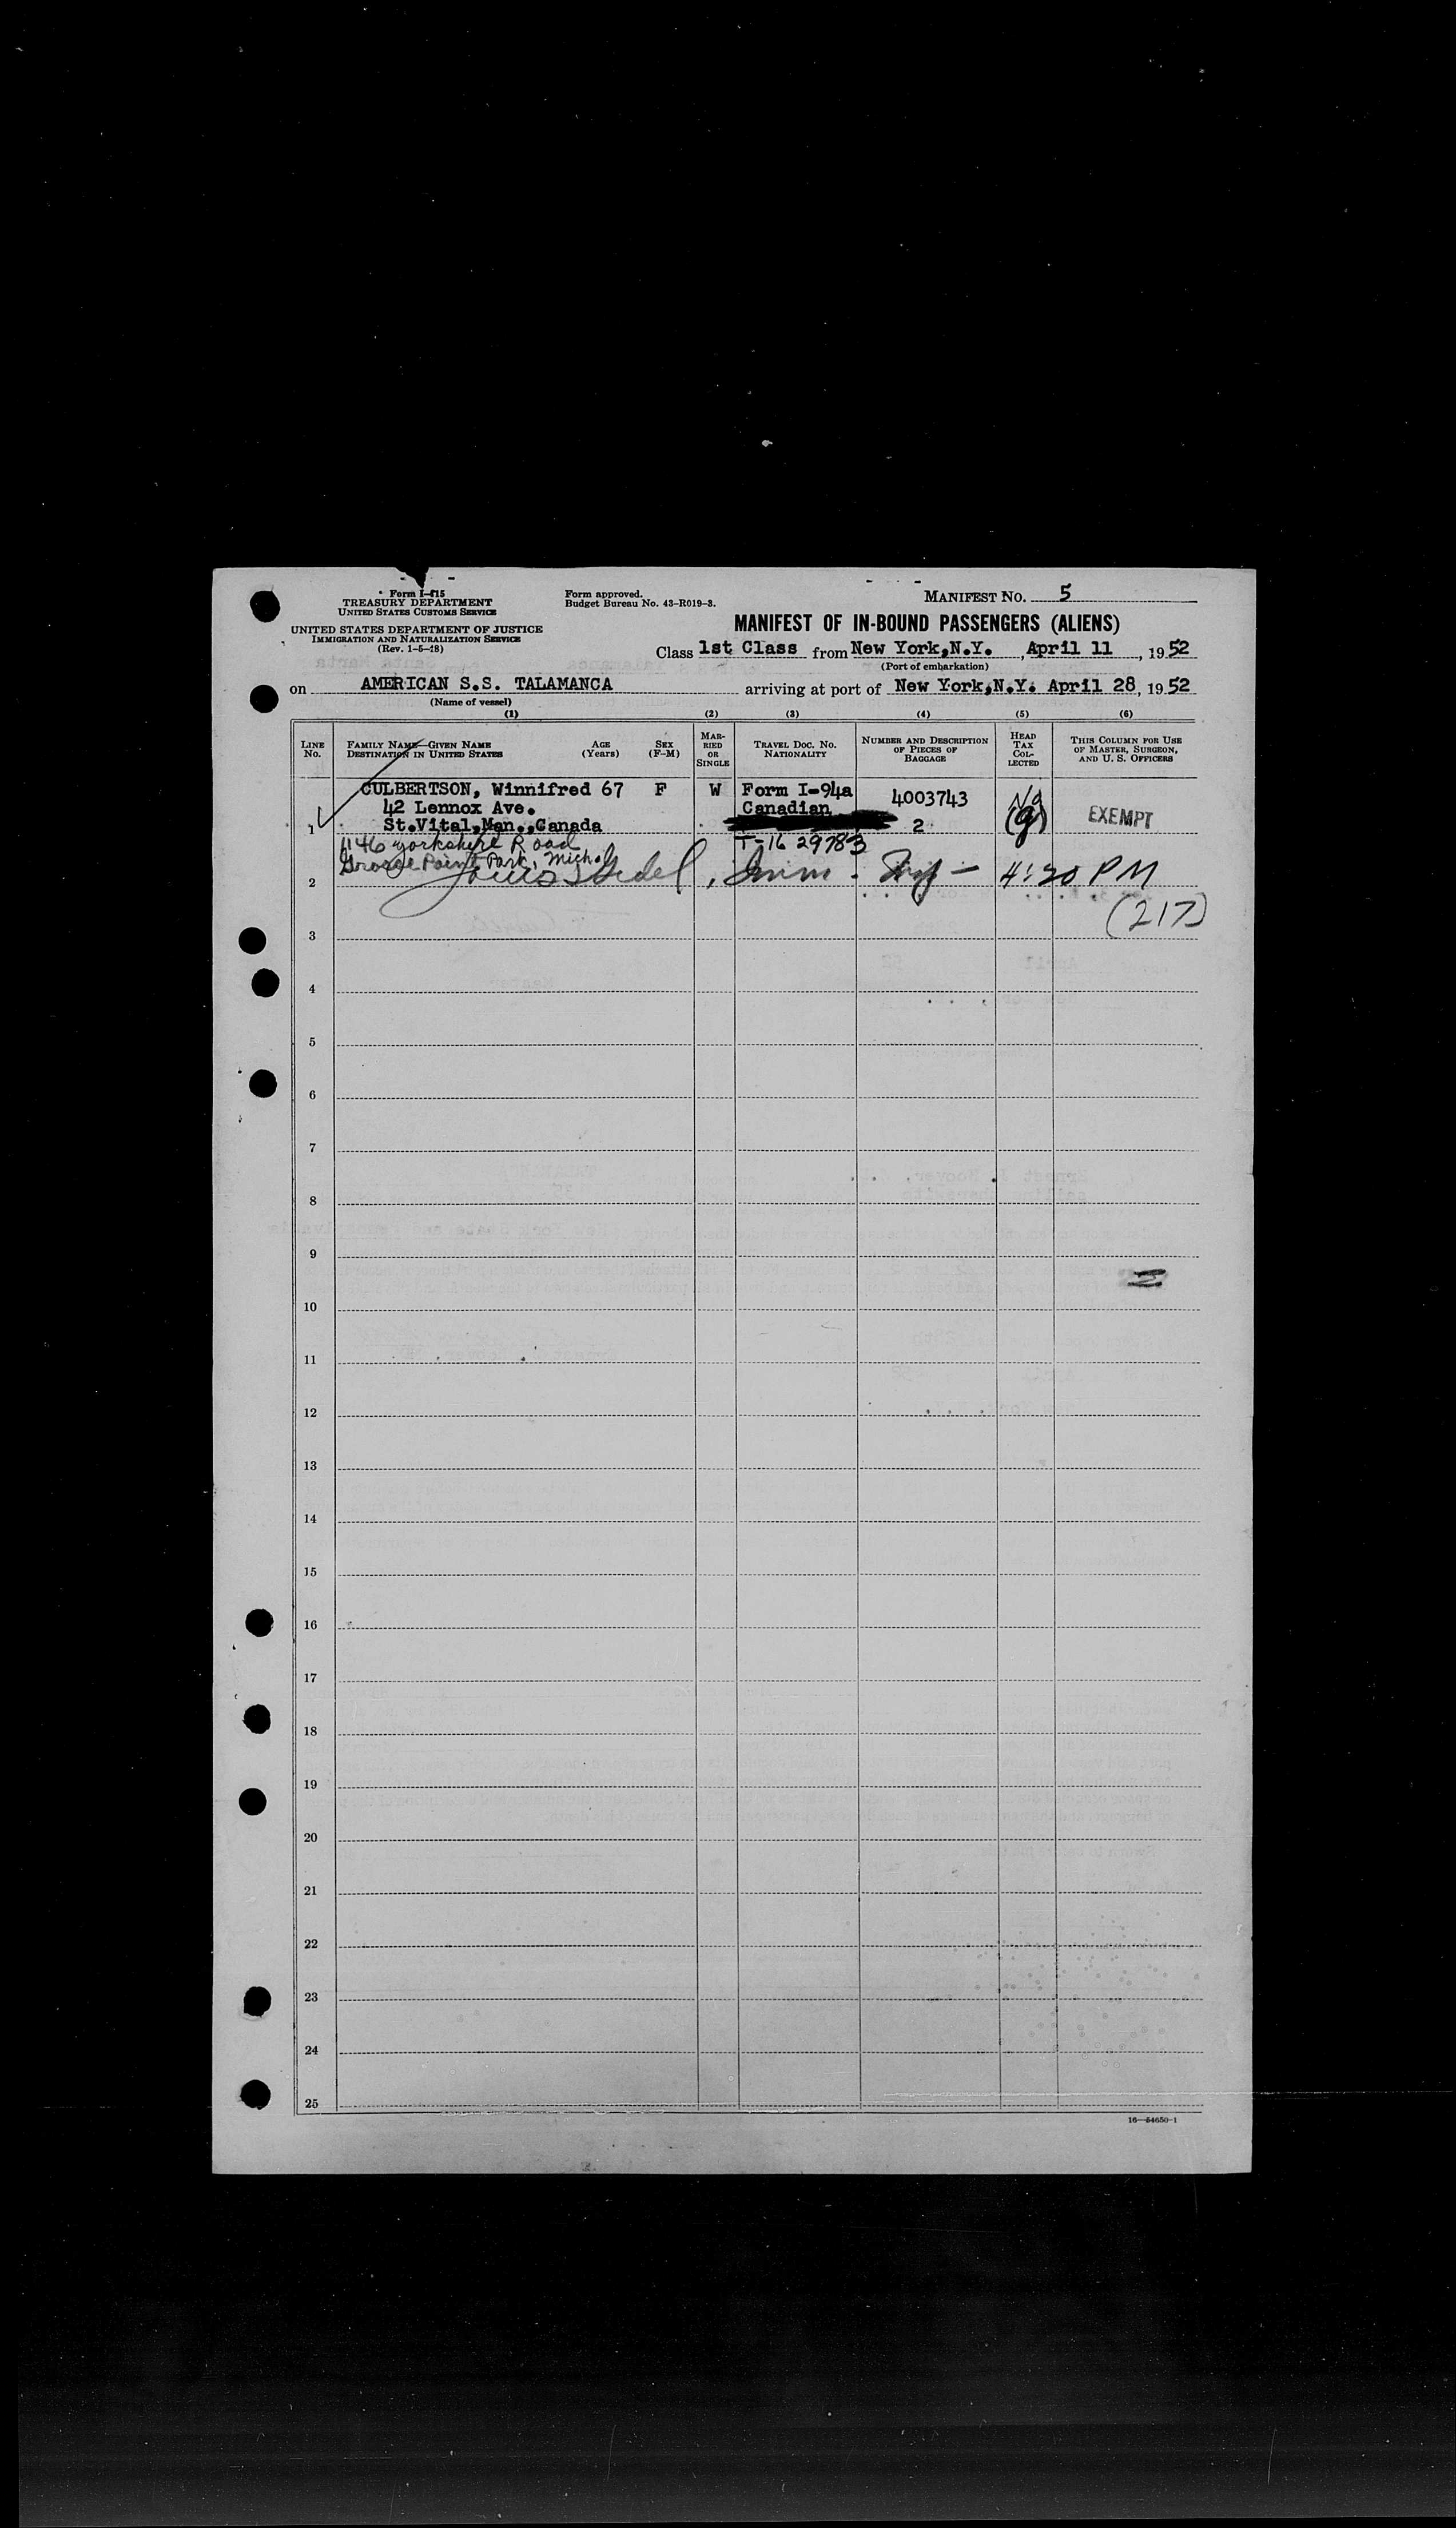 Form I-415
TREASURY DEPARTMENT
UNITED STATES CUSTOMS SERVICE
UNITED STATES DEPARTMENT OF JUSTICE
IMMIGRATION AND NATURALIZATION SERVICE
(Rev. 1-5-48)
Form approved.
Budget Bureau No. 43-R019-3.
MANIFEST NO. 5
MANIFEST OF IN-BOUND PASSENGERS (ALIENS)
Class 1st Class from New York,N.Y. , April 11 , 1952
(Port of embarkation)
on AMERICAN S.S. TALAMANCA arriving at port of New York,N.Y. April 28, 1952
(Name of vessel)
(1) (2) (3) (4) (5) (6)
LINE No. FAMILY NAME—GIVEN NAME DESTINATION IN UNITED STATES AGE (Years) SEX (F-M) MARRIED OR SINGLE TRAVEL DOC. NO. NATIONALITY NUMBER AND DESCRIPTION OF PIECES OF BAGGAGE HEAD TAX COLLECTED THIS COLUMN FOR USE OF MASTER, SURGEON, AND U. S. OFFICERS
CULBERTSON, Winnifred 67 F W Form I-94a 4003743
42 Lennox Ave. Canadian
1 St.Vital,Man.,Canada 2 (g) EXEMPT
1146 Yorkshire Road T-16 29783
Grosse Point Park, Mich.
2 4:20 PM
(217)
3
4
5
6
7
8
9
10
11
12
13
14
15
16
17
18
19
20
21
22
23
24
25
16—54650-1